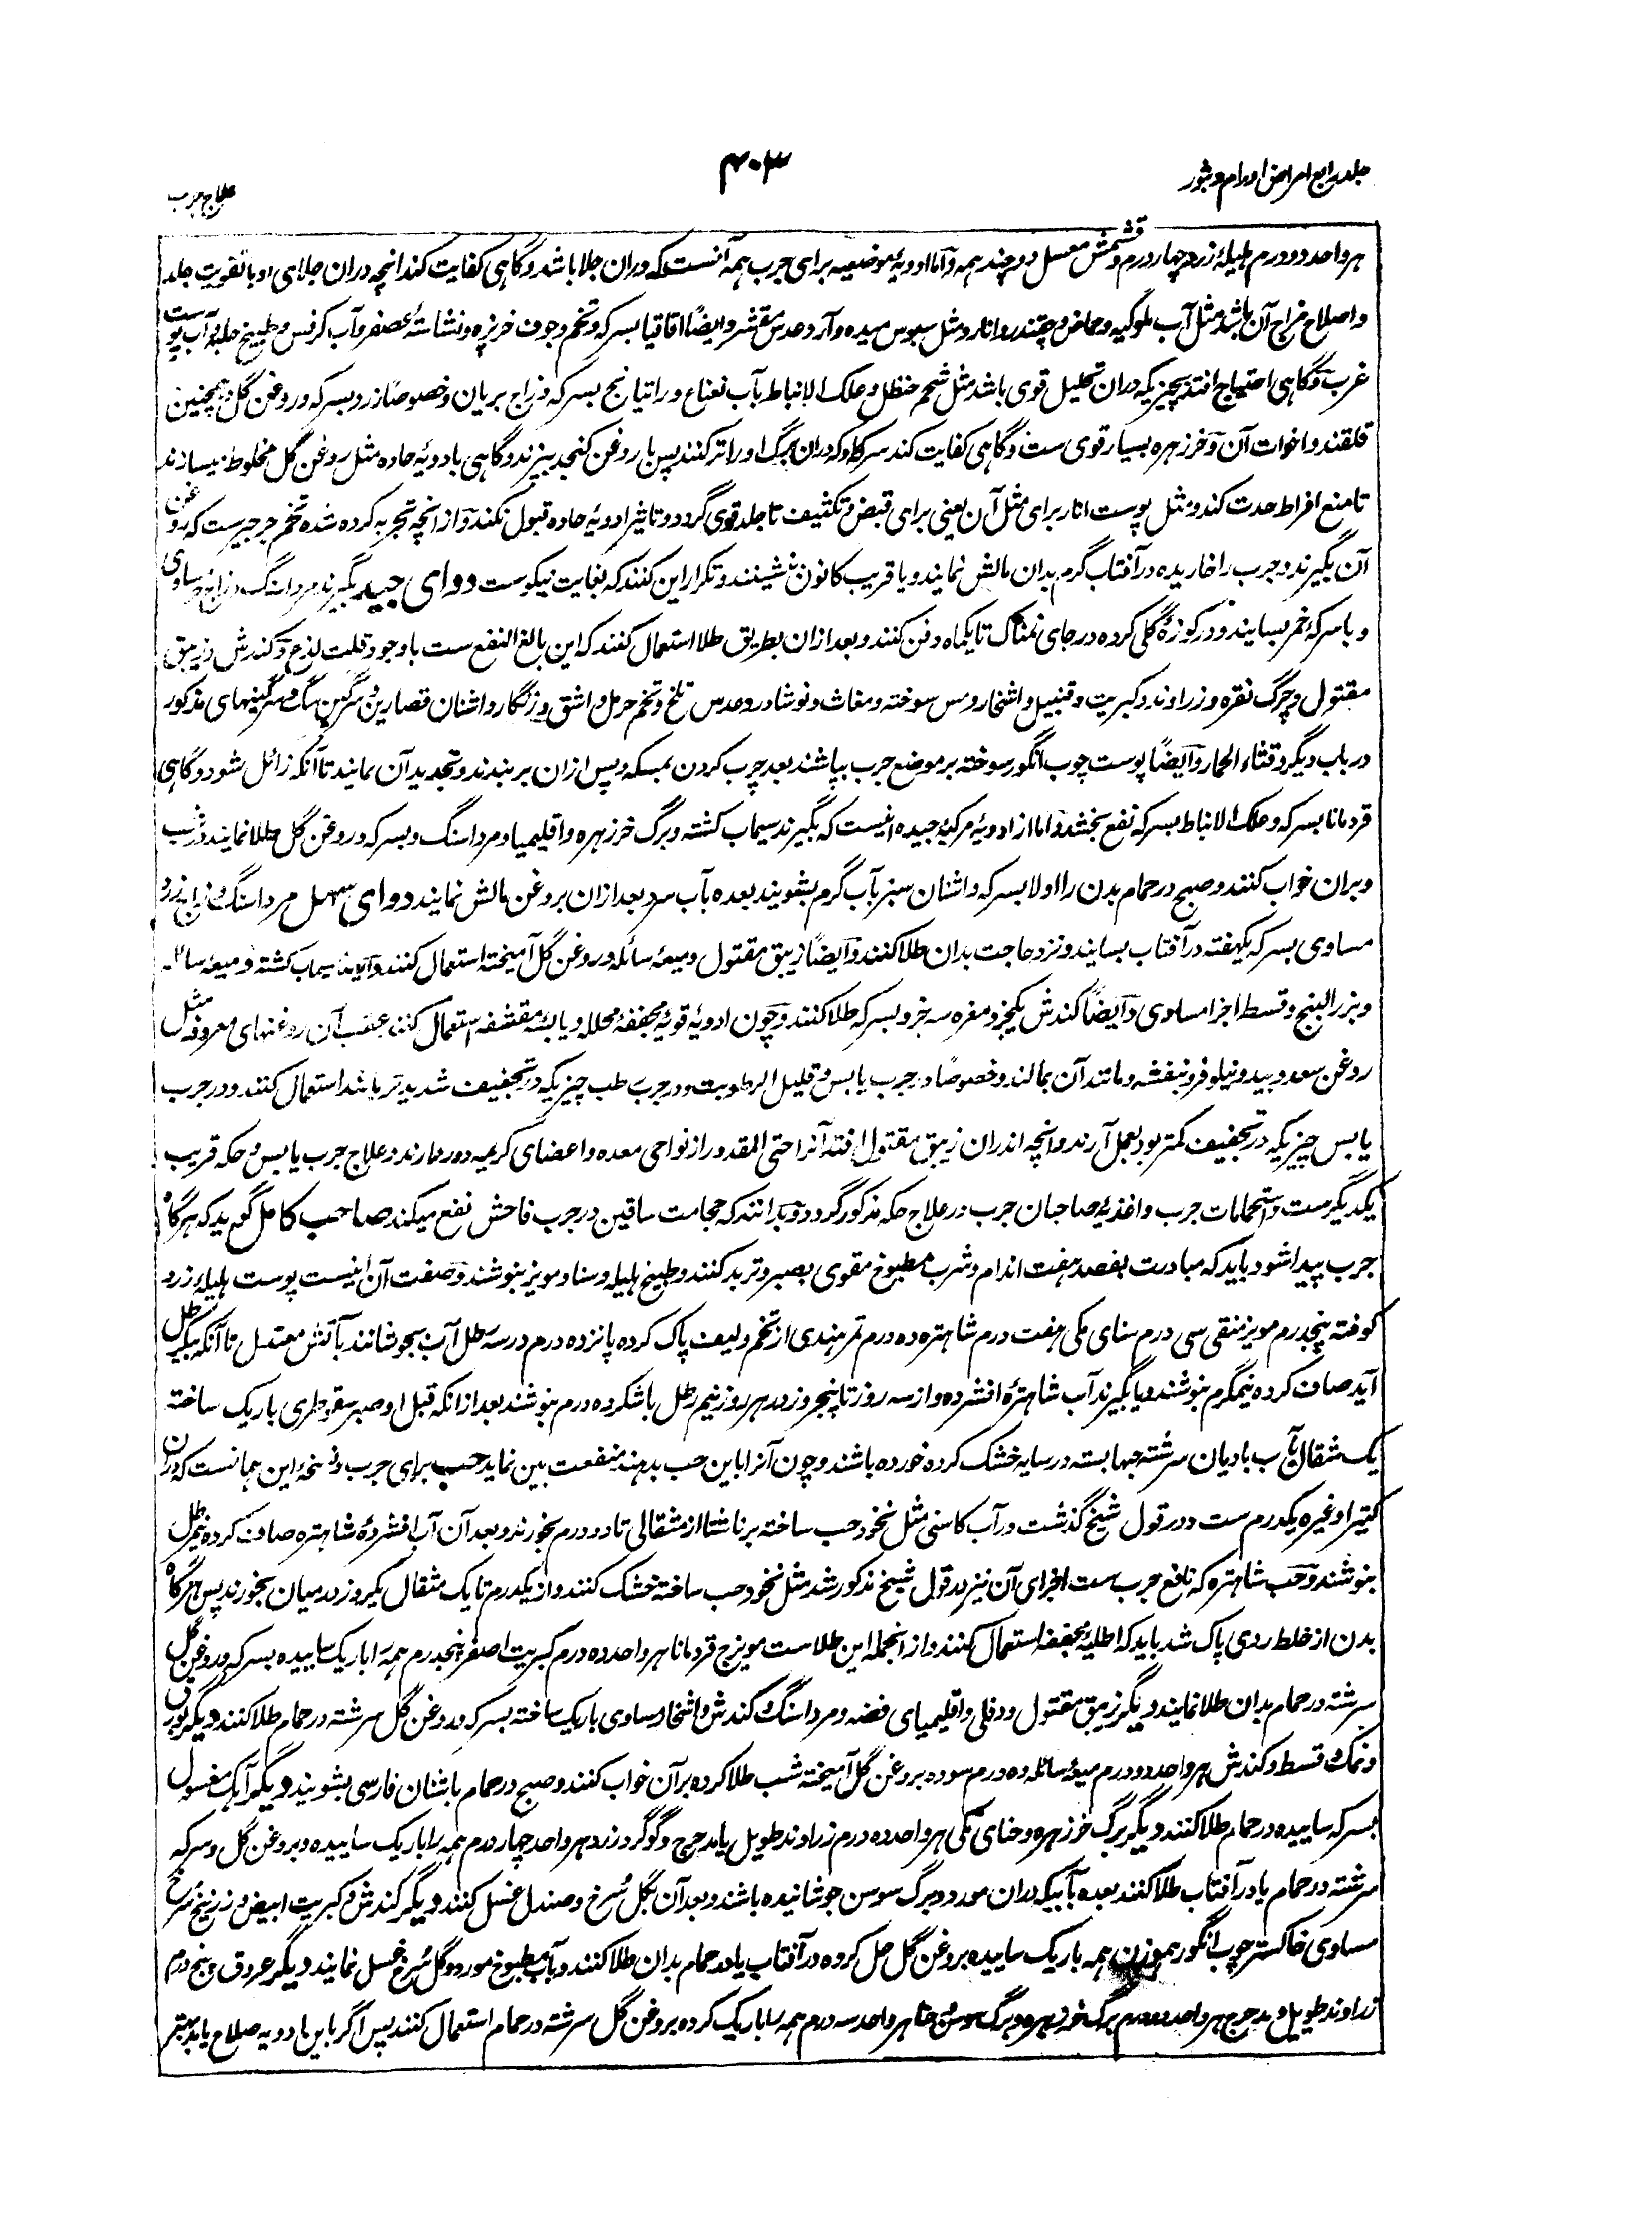 جلد رابع امراض اورام و بثور
۴۰۳
علاج جرب
هر واحد دو درم هلیلهٔ زرد چهار درم و قشمش معسل دو چند همه و اما ادویهٔ موضعیه برای جرب همه آنست که دران جلا باشد و گاهی کفایت کند انچه دران جلای او با تقویت جلد
و اصلاح مزاج آن باشد مثل آب ملوکیه و حماض و چقندر و انار و مثل سبوس میده و آرد عدس مقشر و ایضاً اقاقیا بسرکه و تخم و جوف خرپزه و نشاستهٔ عصفر و آب کرفس و طبیخ حلبه و آب پوست
غرب و گاهی احتیاج افتد بچیزیکه دران تحلیل قوی باشد مثل شحم حنظل و علک الانباط بآب نعناع و راتیانج بسرکه و زاج بریان و خصوصاً زرد بسرکه و روغن گل و همچنین
قلقند و اخوات آن و خرزهره بسیار قوی ست و گاهی کفایت کند سرکه که دران برگ او را تر کنند پس با روغن کنجد بپزند و گاهی بادویهٔ حاده مثل روغن گل مخلوط میسازند
تا منع افراط حدت کند و مثل پوست انار برای مثل آن یعنی برای قبض و تکثیف تا جلد قوی گردد و تاثیر ادویهٔ حاده قبول نکند و از انچه تجربه کرده شده تخم جرجیرست که روغن
آن بگیرند و جرب را خاریده در آفتاب گرم بدان مالش نمایند و یا قریب کانون نشینند و تکرار این کنند که بغایت نیکوست دوای جید بگیرند مرداسنگ و زاج مساوی
و با سرکهٔ خمر بسایند و در کوزهٔ گلی کرده در جای نمناک تا یکماه دفن کنند و بعد ازان بطریق طلا استعمال کنند که این بالغ النفع ست با وجود قلت لذع و کندش و زیبق
مقتول و چرک نقره و زراوند و کبریت و قنبیل و اشخار و مس سوخته و مغاث و نوشادر و عدس تلخ و تخم حرمل و اشق و زنگار و اشنان قصارین و سرگین سگ و سرگینهای مذکور
در باب دیگر و قثاء الحمار و ایضاً پوست چوب انگور سوخته بر موضع جرب بپاشند بعد چرب کردن بمسکه و پس ازان بر بندند و تجدید آن نمایند تا آنکه زائل شود و گاهی
قردمانا بسرکه و علک الانباط بسرکه نفع بخشد و اما از ادویهٔ مرکبهٔ جیده اینست که بگیرند سیماب کشته و برگ خرزهره و اقلیمیا و مرداسنگ و بسرکه و روغن گل طلا نمایند و شب
و بران خواب کنند و صبح در حمام بدن را اولا بسرکه و اشنان سبز بآب گرم بشویند بعده بآب سرد بعد ازان بروغن مالش نمایند دوای سهل مرداسنگ و زاج زرد
مساوی بسرکه یکهفته در آفتاب بسایند و نزد حاجت بدان طلا کنند و ایضاً زیبق مقتول و میعهٔ سائله و روغن گل آمیخته استعمال کنند و ایضاً سیماب کشته و میعه سائله
و بزر البنج و قسط اجزا مساوی و ایضاً کندش یکجزو مغره سه جزو بسرکه طلا کنند و چون ادویهٔ قویهٔ مجففهٔ محلله و یابسهٔ مقشفه استعمال کنند عقب آن روغنهای معروفه مثل
روغن سعد و بید و نیلوفر و بنفشه و مانند آن بمالند و خصوصاً در جرب یابس و قلیل الرطوبت و در جرب رطب چیزیکه در تجفیف شدیدتر باشد استعمال کنند و در جرب
یابس چیزیکه در تجفیف کمتر بود بعمل آرند و انچه اندران زیبق مقتول افتد آنرا حتی المقدور از نواحی معده و اعضای کریمه دور دارند و علاج جرب یابس و حکه قریب
یکدیگرست و استحمامات جرب و اغذیهٔ صاحبان جرب در علاج حکه مذکور گردد و بدانند که حجامت ساقین در جرب فاحش نفع میکند صاحب کامل گوید که هرگاه
جرب پیدا شود باید که مبادرت بفصد هفت اندام و شرب مطبوخ مقوی بصبر و تربد کنند و طبیخ هلیله و سنا و مویز بنوشند و صفت آن اینست پوست هلیلهٔ زرد
کوفته پنجدرم مویز منقی سی درم سنای مکی هفت درم شاهتره ده درم تمر هندی از تخم و لیف پاک کرده پانزده درم در سه رطل آب بجوشانند بآتش معتدل تا آنکه بیکرطل
آید صاف کرده نیمگرم بنوشند و یا بگیرند آب شاهترهٔ افشرده و از سه روز تا پنجروز در هر روز نیم رطل با شکر ده درم بنوشند بعد ازانکه قبل او صبر سقوطری باریک ساخته
یک مثقال بآب بادیان سرشته حبها بسته در سایه خشک کرده خورده باشند و چون آنرا با این حب بدهند منفعت بین نماید حب برای جرب و نسخهٔ این همانست که دران
کتیرا و غیره یکدرم ست و در قول شیخ گذشت و در آب کاسنی مثل نخود حب ساخته بر ناشتا از مثقالی تا دو درم بخورند و بعد آن آب افشردهٔ شاهتره صاف کرده نیم رطل
بنوشند و حب شاهتره که نافع جرب ست اجزای آن نیز در قول شیخ مذکور شد مثل نخود حب ساخته خشک کنند و از یکدرم تا یک مثقال یکروز در میان بخورند پس هرگاه
بدن از خلط ردی پاک شد باید که اطلیهٔ مجففه استعمال کنند و از انجمله این طلاست مویزج قردمانا هر واحد ده درم کبریت اصفر پنجدرم همه را باریک ساییده بسرکه و روغن گل
سرشته در حمام بدان طلا نمایند دیگر زیبق مقتول و دفلی و اقلیمیای فضه و مرداسنگ و کندش و اشخار مساوی باریک ساخته بسرکه و روغن گل سرشته در حمام طلا کنند دیگر بورق
و نمک و قسط و کندش هر واحد دو درم میعهٔ سائله ده درم سوده بروغن گل آمیخته شب طلا کرده بر آن خواب کنند و صبح در حمام باشنان فارسی بشویند دیگر آهک مغسول
بسرکه ساییده در حمام طلا کنند دیگر برگ خرزهره و حنای مکی هر واحد ده درم زراوند طویل یا مدحرج و گوگرد زرد هر واحد چهار درم همه را باریک ساییده و بروغن گل و سرکه
سرشته در حمام یا در آفتاب طلا کنند بعده بآبیکه دران مورد و برگ سوسن جوشانیده باشند و بعد آن بگل سرخ و صندل غسل کنند دیگر کندش و کبریت ابیض و زرنیخ سرخ
مساوی خاکستر چوب انگور هموزن همه باریک ساییده بروغن گل حل کرده در آفتاب یا در حمام بدان طلا کنند و بآب مطبوخ مورد و گل سرخ غسل نمایند دیگر عروق پنج درم
زراوند طویل و مدحرج هر واحد دو درم برگ خرزهره و برگ سوسن و حنا هر واحد سه درم همه را باریک کرده بروغن گل سرشته در حمام استعمال کنند پس اگر باین ادویه صلاح یابد بهتر